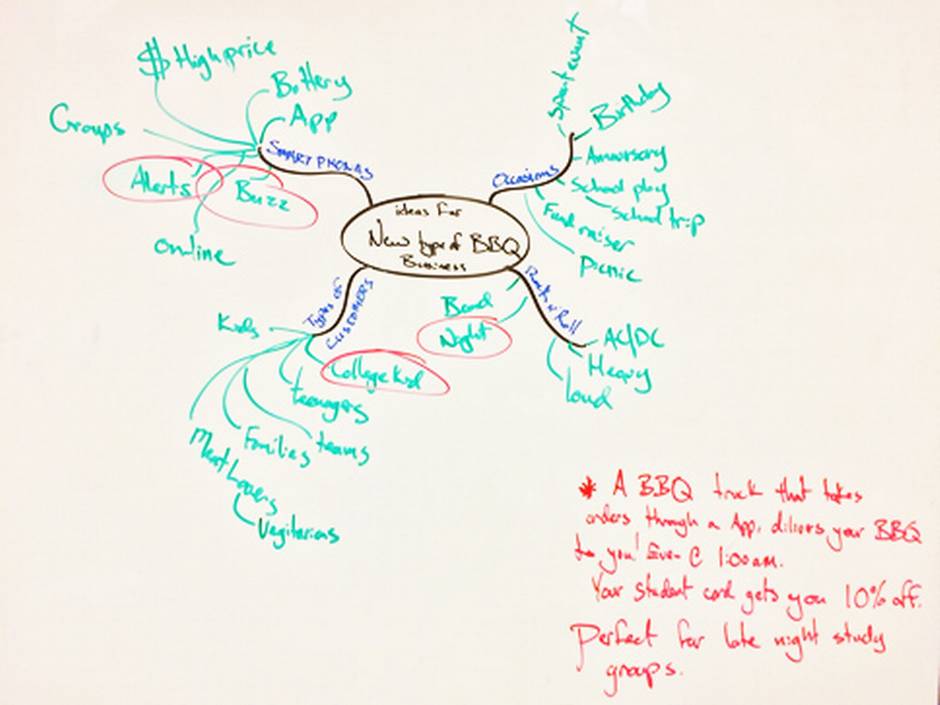 $ High price
Battery
App
Groups
SMART PHONES
Alerts
Buzz
online
Sport event
Birthday
Occasions
Anniversary
School play
School trip
Fundraiser
Picnic
ideas for
New type of BBQ
Business
Types of
CUSTOMERS
Kids
College Kid
teenagers
teams
Families
Meat Lovers
Vegitarians
Rock n' Roll
Band
Night
AC/DC
Heavy
loud
* A BBQ truck that takes
orders through a App, dilivers your BBQ
to you! Even @ 1:00am.
Your student card gets you 10% off.
Perfect for late night study
groups.